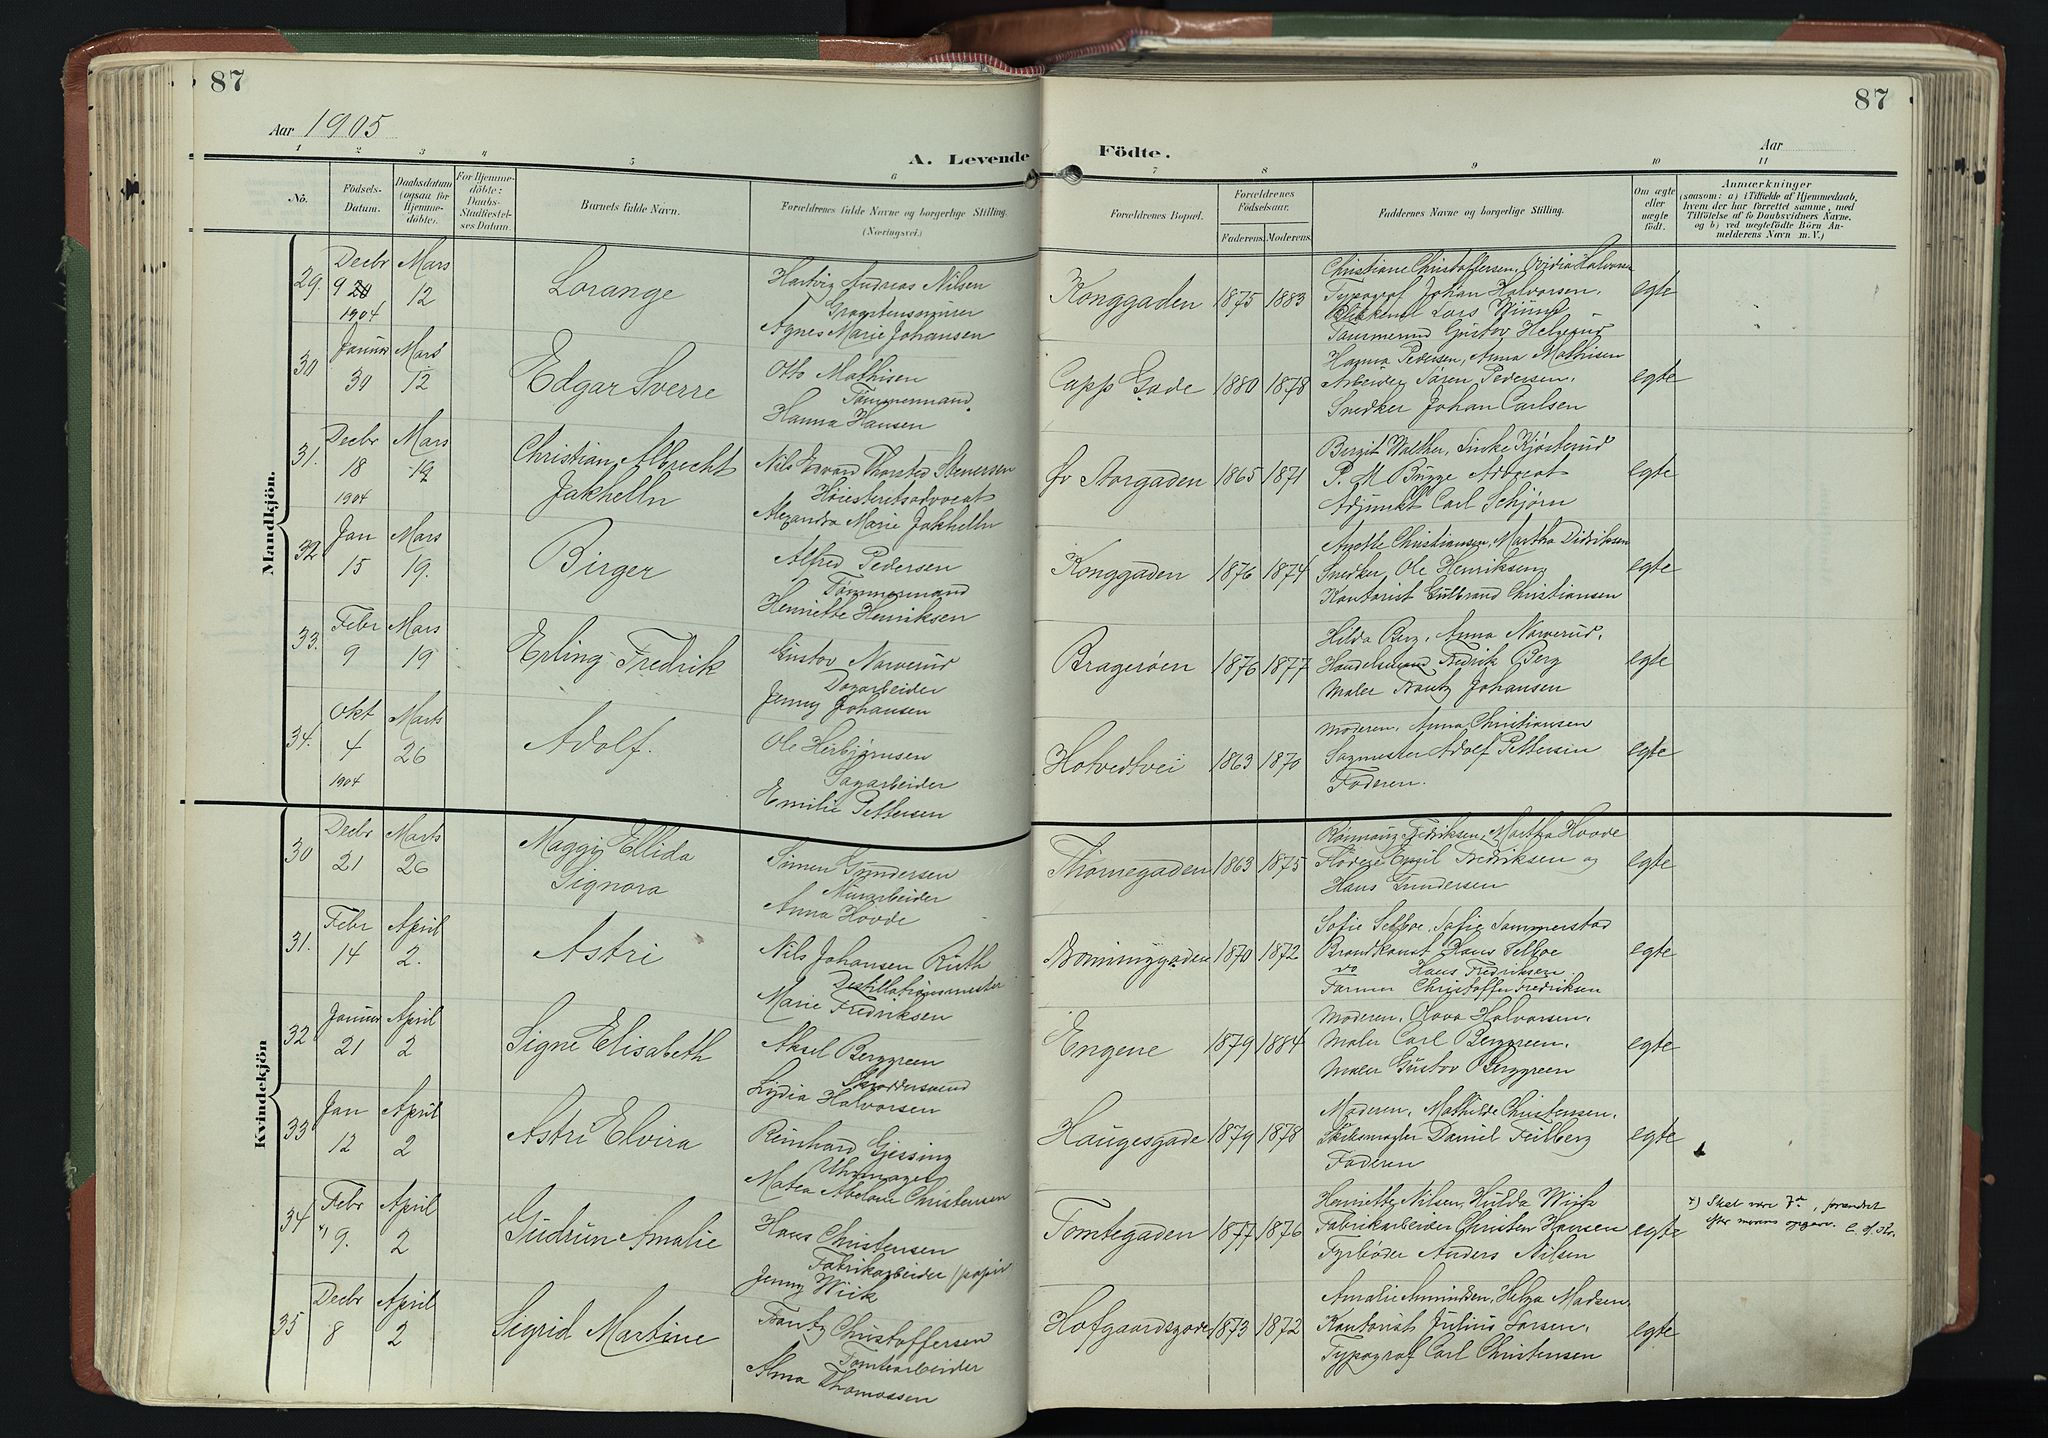 87
87
Aar 1905
Aar
A. Levende Födte.
1 2 3 4 5 6 7 8 9 10 11
No.
Födsels-Datum.
Daabsdatum (ogsaa for Hjemmedöbte).
For Hjemmedöbte: Daabs-Stadfæstelses Datum.
Barnets fulde Navn.
Forældrenes fulde Navne og borgerlige Stilling. (Næringsvei.)
Forældrenes Bopæl.
Forældrenes Födselsaar.
Faderens. Moderens.
Faddernes Navne og borgerlige Stilling.
Om ægte eller uægte födt.
Anmærkninger
(saasom: a) i Tilfælde af Hjemmedaab, hvem der har forrettet samme, med Tilföielse af to Daabsvidners Navne, og b) ved uægtefödte Börn Anmelderens Navn m. V.)
Mandkjön.
29. Decbr 9 1904
Mars 12
Lorange
Hartvig Andreas Nilsen
Graastensmurer
Agnes Marie Johansen
Konggaden 1875 1883
Christiane Christoffersen, Ovidia Halvorsen
Typograf Johan Halvorsen,
Lars
Gustav
egte
30 Januar 30
Mars 12
Edgar Sverre
Otto Mathisen
Tømmermand
Hanna Hansen
Capps Gade 1880 1878
Hanna Pedersen, Anna Mathisen
Arbeider Søren Pedersen,
Snedker Johan Carlsen
egte
31. Decbr 18 1904
Mars 19
Christian Albrecht
Jakhelln
Nils Thorstad Stenersen
Høiesteretsadvocat
Alexandra Marie Jakhelln
Øv Storgaden 1865 1871
Birgit Walther,
P. M Bugge Advocat
Adjunkt Carl Schjørn
egte
32. Jan 15
Mars 19.
Birger
Alfred Pedersen
Tømmermand
Henriette Henriksen
Konggaden 1876 1874
Anette Christiansen, Martha Didriksen
Snedker Ole Henriksen,
Kontorist Gulbrand Christiansen
egte
33. Febr 9
Mars 19
Erling Fredrik
Gustav Narverud
Dagarbeider
Jenny Johansen
Bragerøen 1876 1877
Hilda Berg, Anna Narverud,
Handelsmand Fredrik Berg
Maler Frantz Johansen
egte
34. Okt 4 1904
Marts 26
Adolf.
Ole Herbjørnsen
Sagarbeider
Emilie Pettersen
Hotvedtvei 1863 1870
Moderen, Anna Christiansen
Sagmester Adolf Pettersen
Faderen.
egte
Kvindekjön
30 Decbr 21
Marts 26
Maggy Ellida
Signora
Simen Gundersen
Murarbeider
Anna Hovde
Thornegaden 1863 1875
Fredriksen, Martha Hovde
Emil Fredriksen og
Hans Gundersen
egte
31. Febr 14
April 2.
Astri
Nils Johansen Ruth
Destillationsmester
Marie Fredriksen
1870 1872
Sofie Selboe, Sofie Sommerstad
Brandkonst Hans Selboe
do Hans Fredriksen,
Farmer Christoffer Fredriksen
egte
32 Januar 21
April 2
Signe Elisabeth
Aksel Berggreen
Skræddersvend
Lydia Halvorsen
Engene 1879 1884
Moderen, Olava Halvorsen,
Maler Carl Berggreen,
Maler Gustav Berggreen
egte
33 Jan 12
April 2
Astri Elvira
Reinhard Gjessing
Uhrmager
Matea Christensen
Haugesgade 1879 1878
Moderen, Mathilde Christensen,
Skibsmægler Daniel Feilberg
Faderen
egte
34 Febr x) 9.
April 2
Gudrun Amalie
Hans Christensen
Fabrikarbeider (papir
Jenny Wiik
Tomtegaden 1877 1876
Henriette Nilsen, Hulda Wiik
Fabrikarbeider Christen Hansen
Fyrbøder Anders Nilsen
egte
x) Skal være 7de, forandret
efter morens opgave.
35 Decbr 8
April 2
Sigrid Martine
Frantz Christoffersen
Tomtearbeider
Alma Thomassen
Hofgaardsgaden 1873 1872
Amalie Amundsen, Helga Madsen,
Kontorist Julius Larsen,
Typograf Carl Christensen
egte